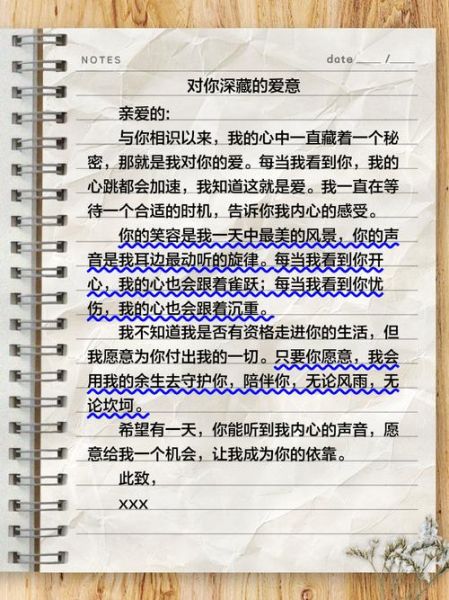 NOTES date /
对你深藏的爱意
亲爱的:
与你相识以来，我的心中一直藏着一个秘
密，那就是我对你的爱。每当我看到你，我的
心跳都会加速，我知道这就是爱。我一直在等
待一个合适的时机，告诉你我内心的感受。
你的笑容是我一天中最美的风景，你的声
音是我耳边最动听的旋律。每当我看到你开
心，我的心也会跟着雀跃；每当我看到你忧
伤，我的心也会跟着沉重。
我不知道我是否有资格走进你的生活，但
我愿意为你付出我的一切。只要你愿意，我会
用我的余生去守护你，陪伴你，无论风雨，无
论坎坷。
希望有一天，你能听到我内心的声音，愿
意给我一个机会，让我成为你的依靠。
此致，
xxx